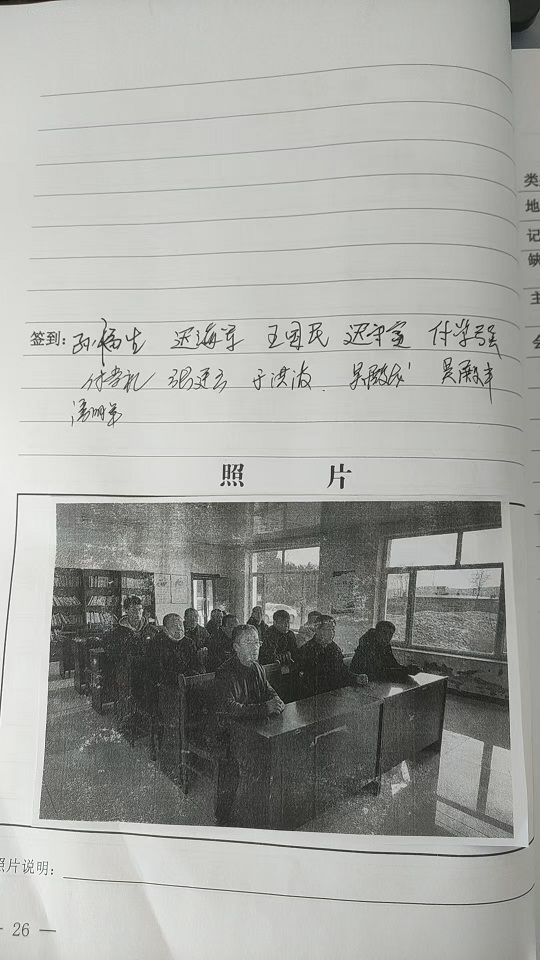 类
地
记
缺
主
签到：孙福生 迟海军 王国民 迟守富 付学强
付学礼 张建云 于洪波 吴殿成 吴殿丰
潘明军
照 片
照片说明：
— 26 —